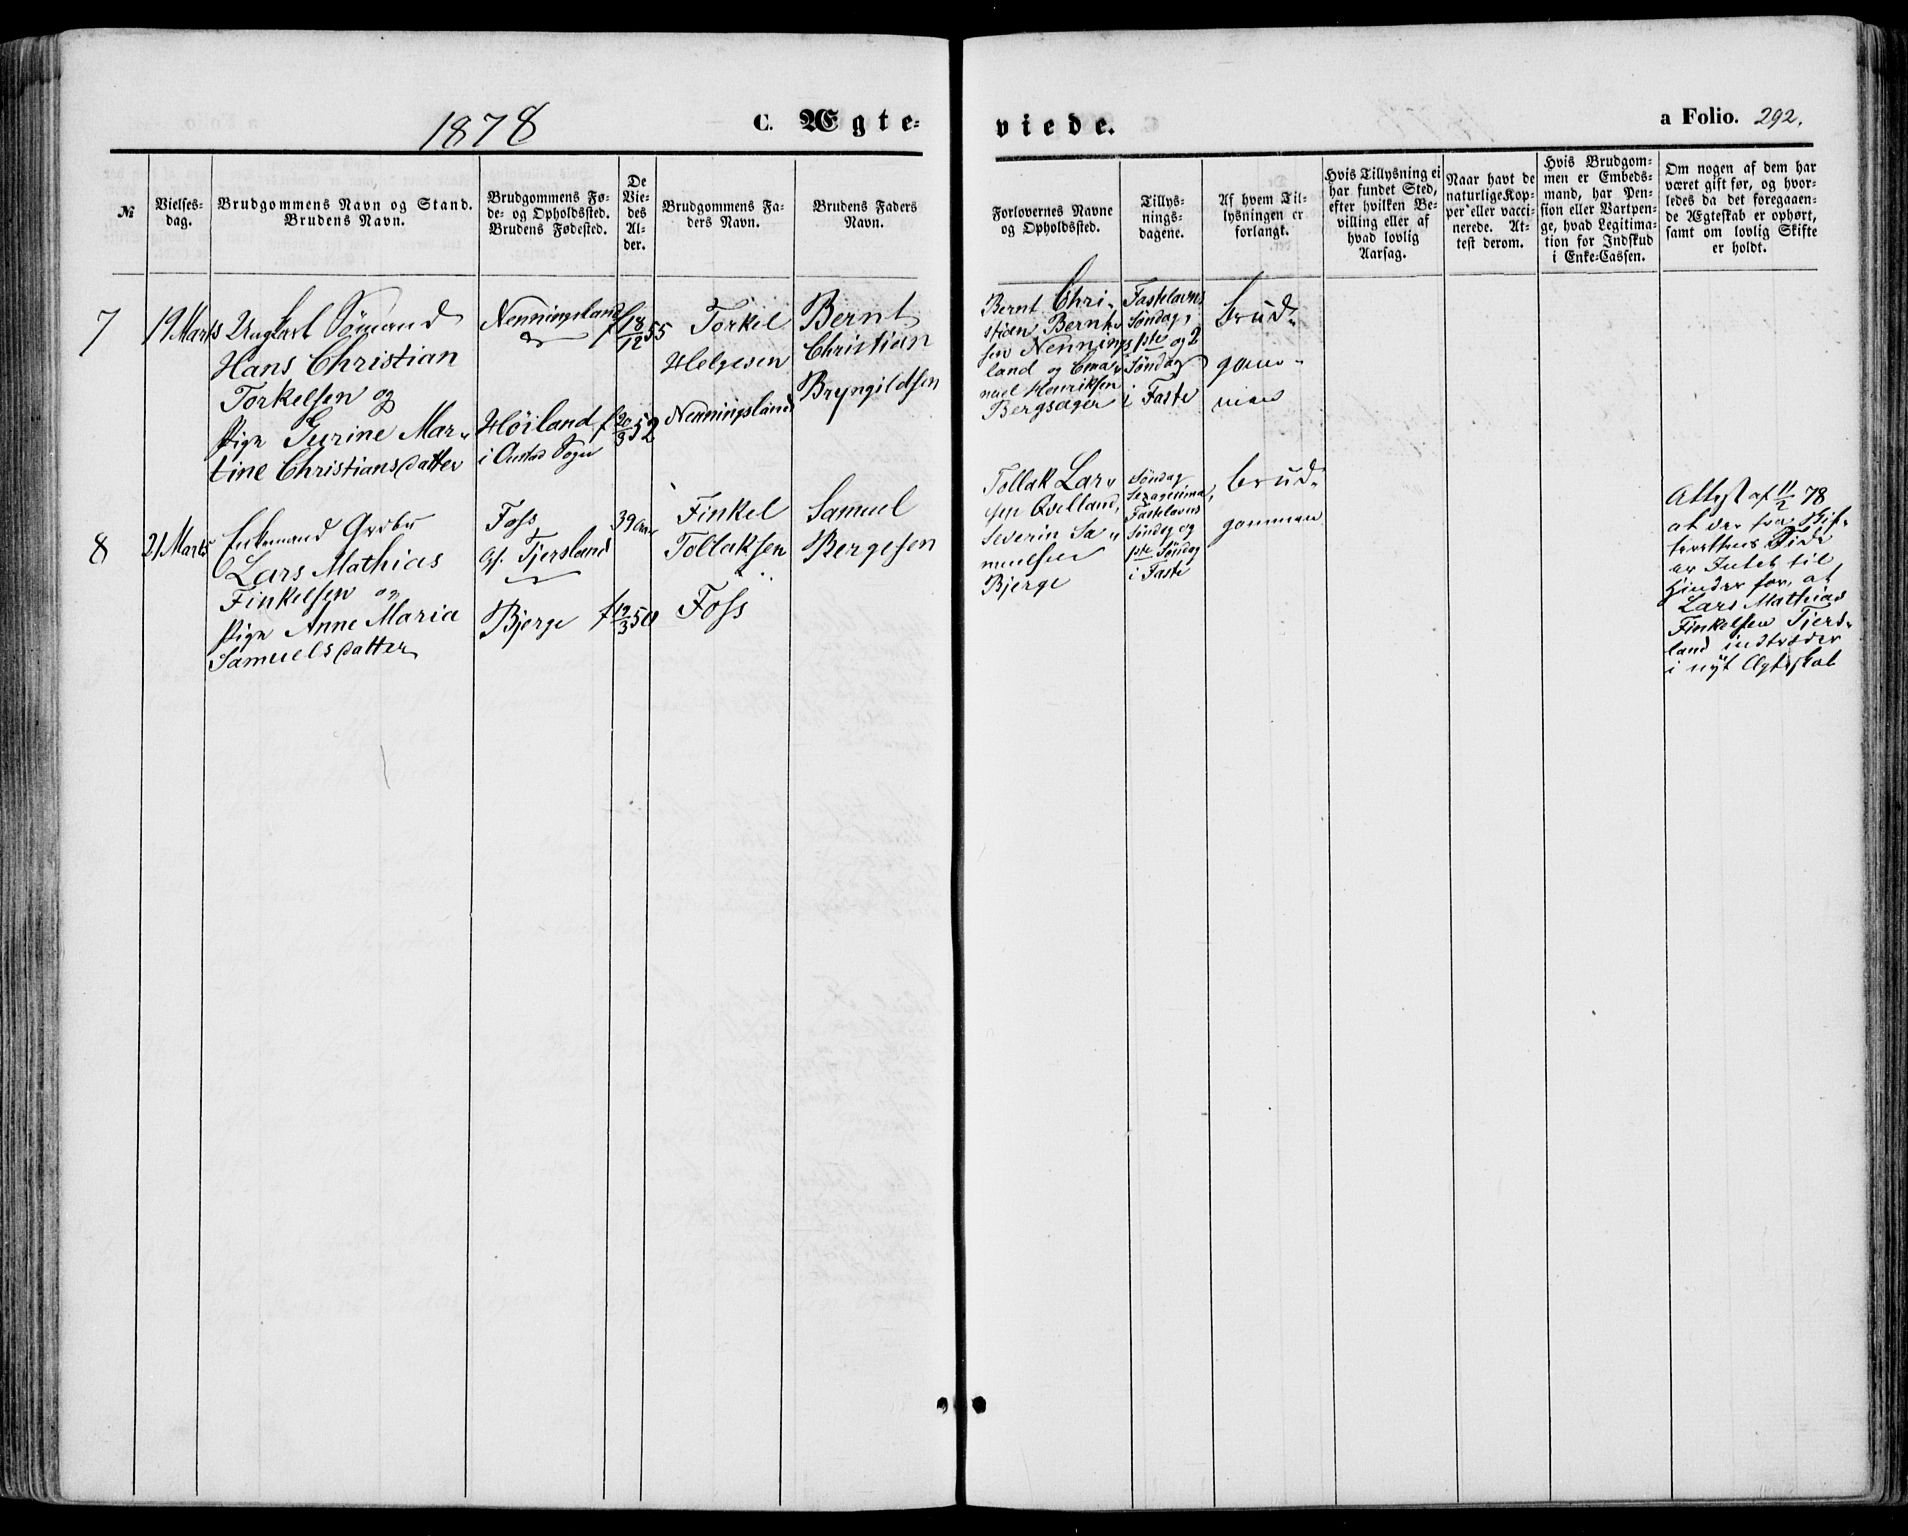 1878
C. Ægte-
viede.
a Folio. 292.
№
Vielses-
dag.
Brudgommens Navn og Stand.
Brudens Navn.
Brudgommens Fø-
de- og Opholdssted.
Brudens Fødested.
De
Vie-
des
Al-
der.
Brudgommens Fa-
ders Navn.
Brudens Faders
Navn.
Forlovernes Navne
og Opholdssted.
Tillys-
nings-
dagene.
Af hvem Til-
lysningen er
forlangt.
Hvis Tillysning ei
har fundet Sted,
efter hvilken Be-
villing eller af
hvad lovlig
Aarsag.
Naar havt de
naturlige Kop-
per eller vacci-
nerede. At-
test derom.
Hvis Brudgom-
men er Embeds-
mand, har Pen-
sion eller Vartpen-
ge, hvad Legitima-
tion for Indskud
i Enke-Cassen.
Om nogen af dem har
været gift før, og hvor-
ledes da det foregaaen-
de Ægteskab er ophørt,
samt om lovlig Skifte
er holdt.
7
19 Marts
Ungkarl Sömand
Hans Christian
Torkelsen og
Pige Gurine Mar-
tine Christiansdatter
Nenningsland
Höiland
i Oustad Sogn
f 18/12 55
f 20/3 52
Torkel
Helgesen
Nenningsland
Bernt
Christian
Bryngildsen
Bernt Chri-
stian Bernt-
sen Nennings
land og Ema-
nuel Henriksen
Bergsager
Fastelavns
Søndag,
1ste og 2
Søndag
i Faste
Brud-
gom-
men
8
21 Marts
Enkemand Grdbr
Lars Mathias
Finkelsen og
Pige Anne Maria
Samuelsdatter
Foss
Gf. Tjersland
Bjerge
39 Aar
f 12/3 50
Finkel
Tollaksen
Foss
Samuel
Bergesen
Tollak Lar-
sen Qvelland,
Severin Sa-
muelsen
Bjerge
Søndag
Sexagesima,
Fastelavns
Søndag og
1ste Søndag
i Faste
Brud-
gommen
Attest af 11/2 78
at der fra Skif-
terettens Side
er Intet til
Hinder for, at
Lars Mathias
Finkelsen Tjers-
land indtræder
i nyt Ægteskab